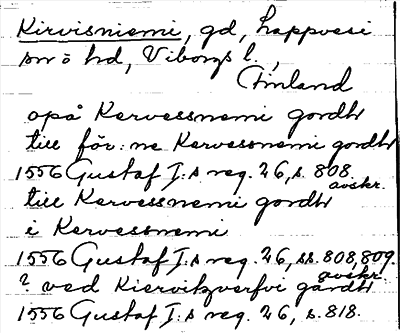 Kirvisniemi, gd, Lappvesi
sn o hd, Viborgs l.,
Finland
opå Kervessnemi gordh
till för: ne Kervessnemi gordh
1556 Gustaf I:s reg. 26, s. 808
avskr.
till Kervessnemi gordh
i Kervessnemi
1556 Gustaf I:s reg. 26, ss. 808, 809.
avskr.
? ved Kiervitzverfvi gårdh
1556 Gustaf I:s reg. 26, s. 818.